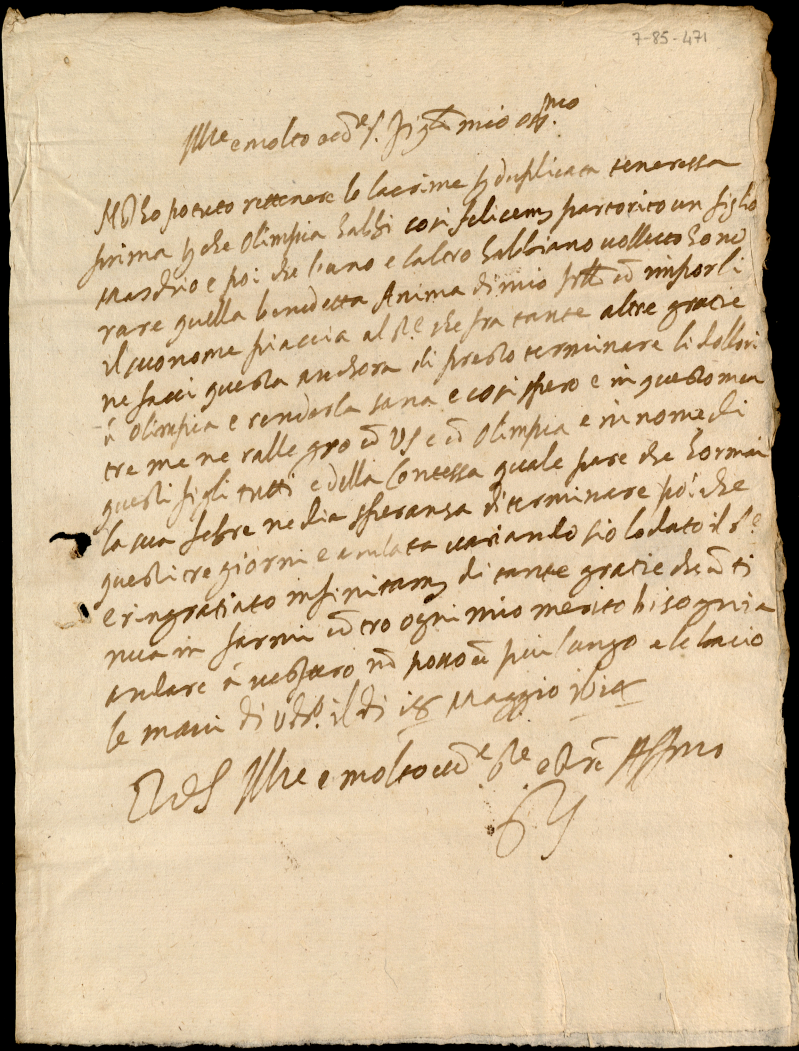 7-85-471
Ill.re e molto ecc.te S. sig.re mio oss.mo
Nō ho potuto rettenere le lacrime p duplicata teneressa
prima p che Olimpia habbi cosi felicem. partorito un figlio
Maschio e poi che l'uno e l'altro habbiano vollutto hono
rare quella benedetta Anima di mio frtllo cō imporli
il suo nome piaccia al S.re che fra tante altre gratie
ne facci questa anchora di presto terminare li dollori
á Olimpia e renderla sana e cosi spero e in questo men
tre me ne rallegro cō VS e cō Olimpia e in nome di
questi figli tutti e della Contessa quale pare che hormai
la sua febre ne dia speranza di terminare poi che
questi tre giorni e andata variando sio lodato il S.re
e ringratiato infinitam. di tante gratie che cō ti
nua in farmi cō tro ogni mio merito bisognia
andare á vespero nō posso cē piu lungo e le bacio
le mani di il di 18 Maggio 1614
Di VS Ill.re e molto ecc.te S.re